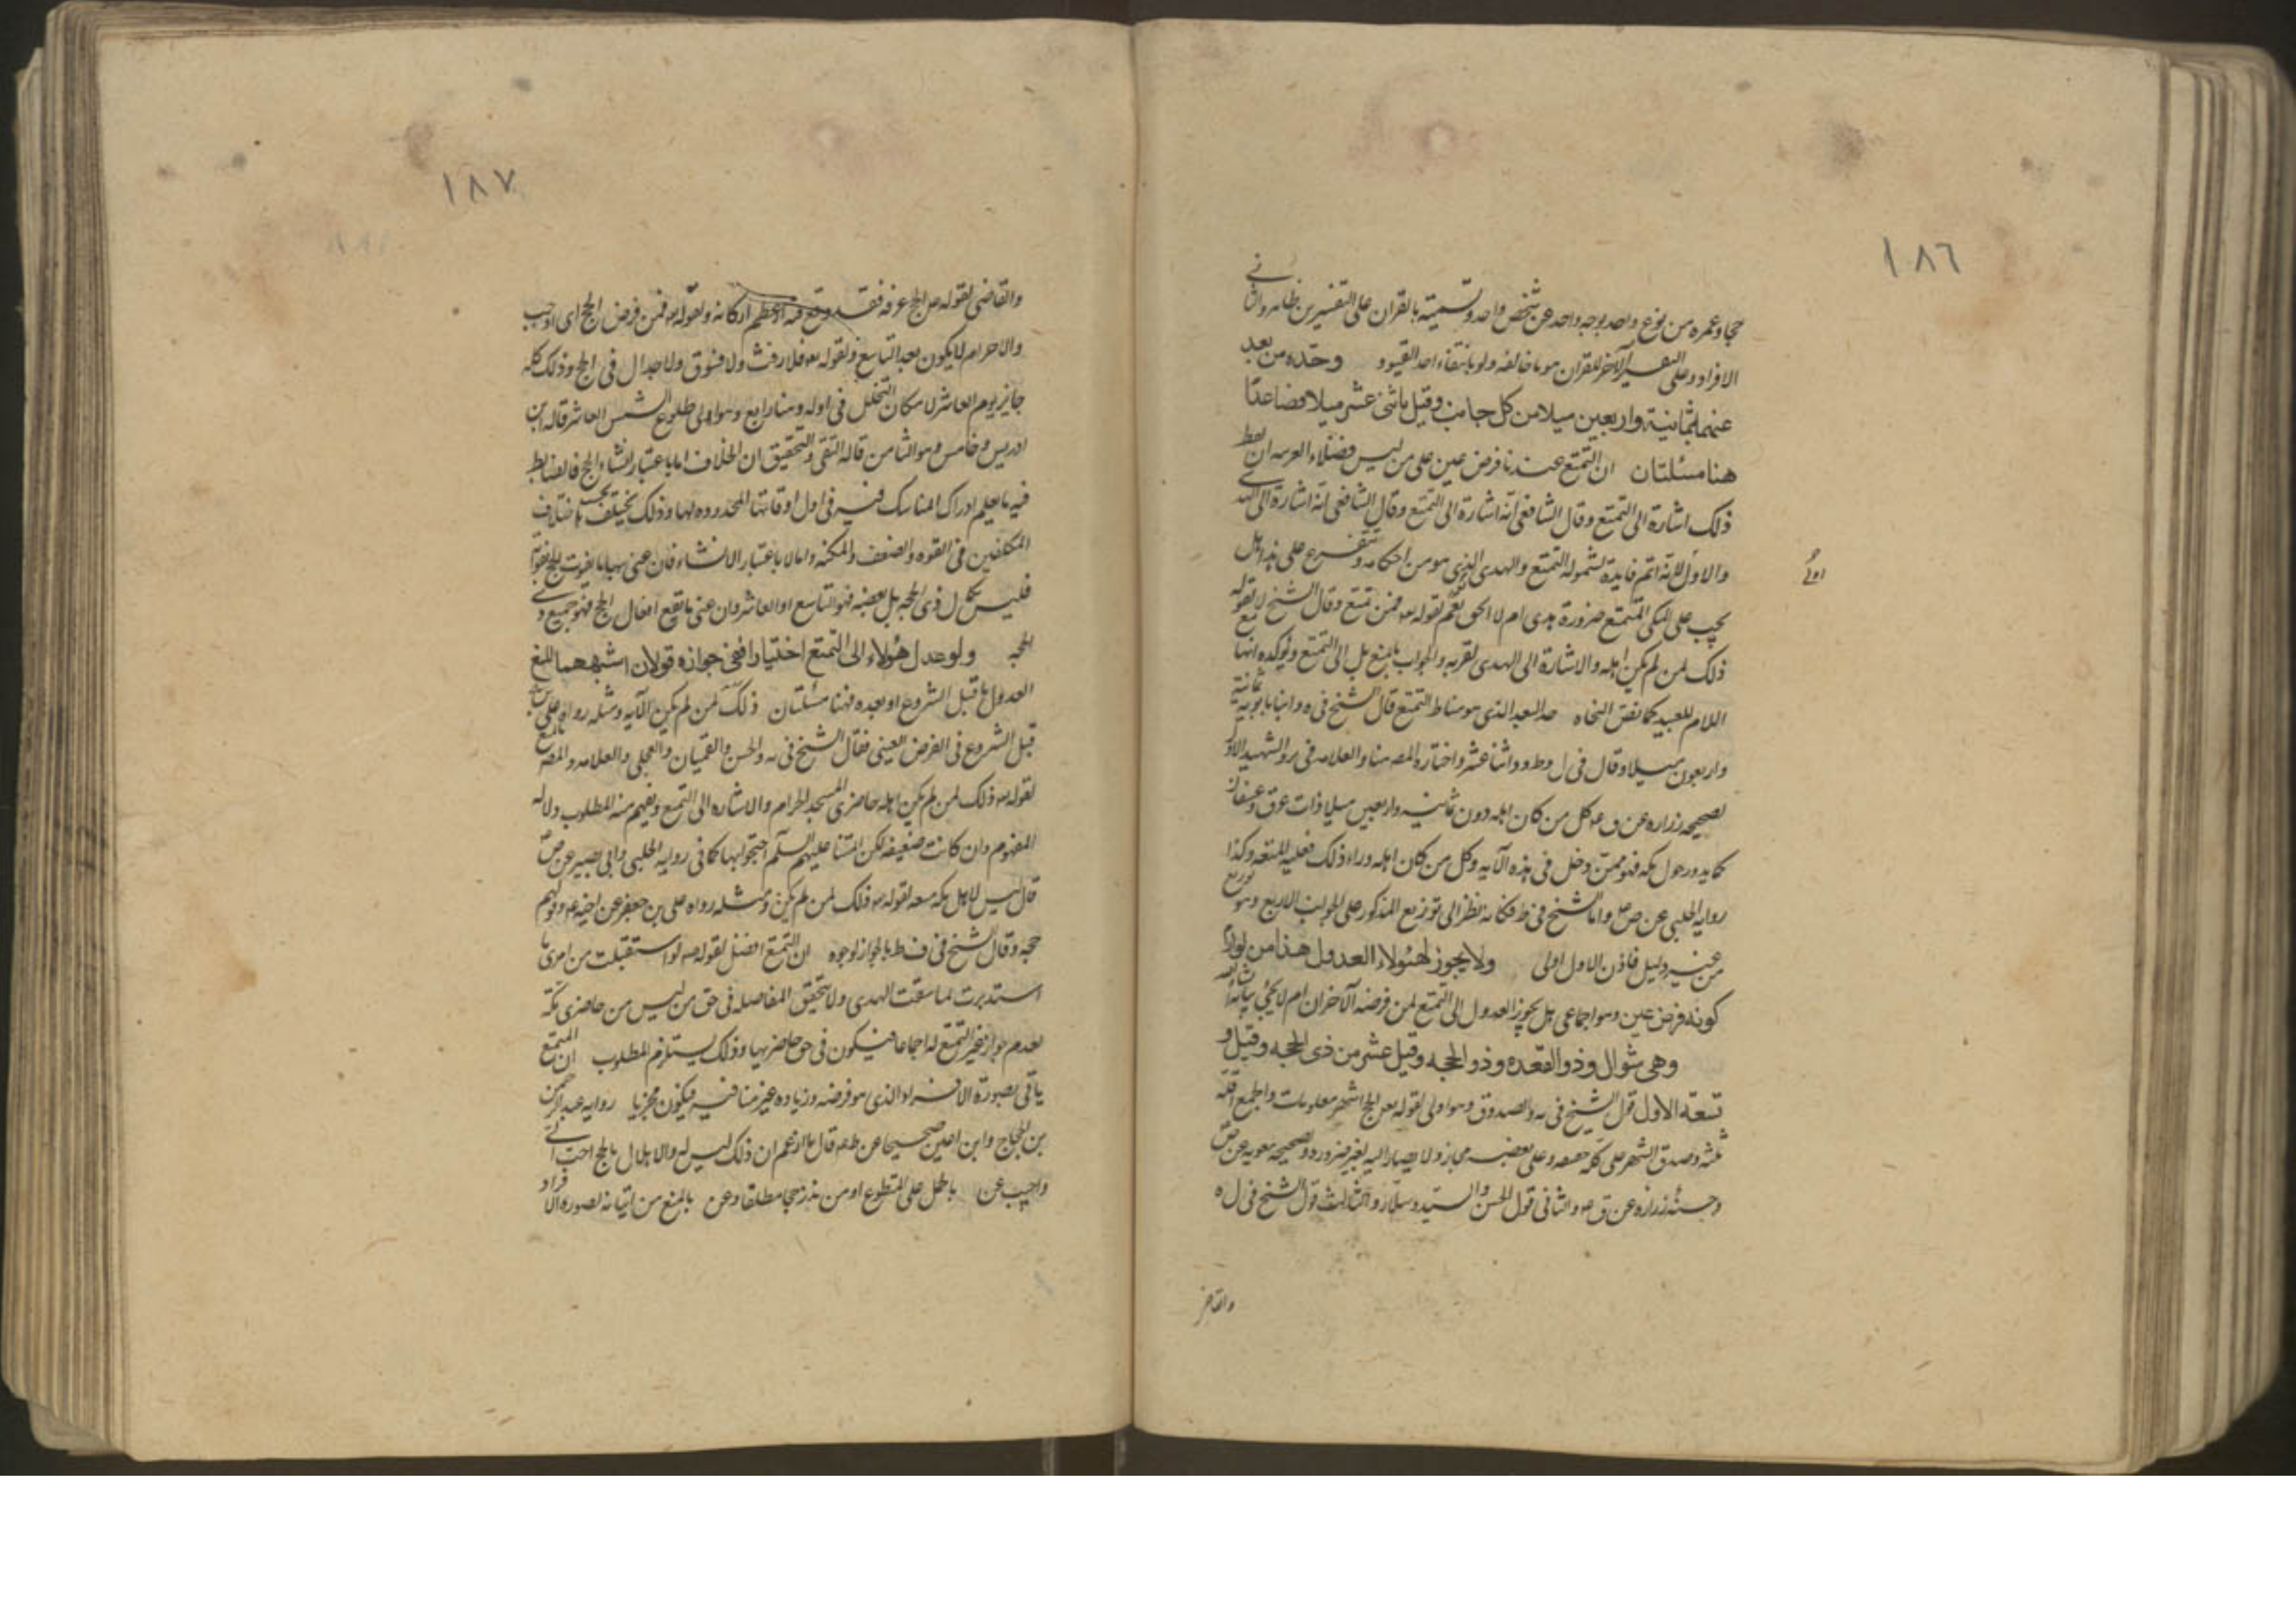 ١٨٦
حجا وعمره من نوع واحد بوجه واحد عن شخص واحد وتسميته بالقران على التفسيرين ظاهر والثاني
الافراد وعلى التفسير الآخر للقران هو ما خالفه ولو بانتفاء احد القيود وحده من بعد
عنها بثمانية واربعين ميلا من كل جانب وقيل باثنى عشر ميلا فصاعدا
هنا مسئلتان ان التمتع عندنا فرض عين على من ليس
ذلك اشارة الى التمتع وقال الشافعي انه اشارة الى التمتع وقال الشافعي انه اشارة الى الهدي
والاول لانه اتم فايدة لشموله التمتع والهدى الذي هو من احكامه ويتفرع على هذا هل
اولى
يجب على المكي المتمتع ضرورة هدى ام لا الحق نعم لقوله تع فمن تمتع وقال الشيخ لا لقوله تع
ذلك لمن لم يكن اهله والاشارة الى الهدى لقربه والجواب بالمنع بل الى التمتع ويؤكده انها
اللام للبعيد كما نص النحاه حد البعد الذي هو مناط التمتع قال الشيخ في يه وابنا بابويه ثمانية
واربعون ميلا وقال في ل وط وو اثنا عشر واختاره المصـ هنا والعلامه في والشهيد الاول
لصحيحه زراره عن ق ع كل من كان اهله دون ثمانيه واربعين ميلا ذات عرق وعسفان
كما يدور حول مكه فهو ممن دخل في هذه الآيه وكل من كان اهله وراء ذلك فعليه المتعه وكذا
روايه الحلبي عن ص ع واما الشيخ في ط فكانه نظر الى توزيع المذكور على الجوانب الاربع وهو توزيع
من غير دليل فاذن الاول اولى ولا يجوز لهؤلاء العدول هذا من لوازم
كونه فرض عين وهو اجماعي هل يجوز العدول الى التمتع لمن فرضه الآخران ام لا يجئ بيانه ان شاء الله
وهى شوال وذو القعده وذو الحجه وقيل عشر من ذى الحجه وقيل و
تسعة الاول قول الشيخ في يه والصدوق وهو اولى لقوله تعر الحج اشهر معلومات والجمع اقله
ثلثه وصدق الشهر على كله حقيقه وعلى بعضه مجاز ولا يصار اليه لغير ضروره وصحيحه معويه عن ص
وحسنة زراره عن ق ع والثاني قول الحسن والسيد وسلار والثالث قول الشيخ في ل ه
والقاضي
١٨٧
والقاضي لقوله ص الحج عرفه فقد وقع فيه اعظم اركانه ولقوله تع فمن فرض الحج اى اوجب
والاحرام لا يكون بعد التاسع ولقوله تع فلا رفث ولا فسوق ولا جدال في الحج وذلك كله
جايز يوم العاشر لامكان التحلل في اوله وهنا رابع وهو الى طلوع الشمس العاشر قاله ابن
ادريس وخامس وهو الثامن قاله التقى والتحقيق ان الخلاف اما باعتبار انشاء الحج فالضابط
فيه ما يعلم ادراك المناسك فيه في اول اوقاتها المحدوده لها وذلك يختلف بحسب اختلاف
المكلفين في القوه والضعف والمكنه واما لا باعتبار الانشاء فان عنى بها ما يفوت الحج بفواته
فليس كمال ذى الحجه بل بعضه فهو التاسع او العاشر وان عنى ما يقع افعال الحج فهو جميع ذي
الحجه ولو عدل هؤلاء الى التمتع اختيارا ففى جوازه قولان اشبههما المنع
العدول اما قبل الشروع او بعده فهنا مسئلتان ذلك لمن لم يكن الآيه ومثله رواه على بن جعفر
قبل الشروع في الفرض العينى فقال الشيخ في يه والحسن والقميان والعجلى والعلامه والمصـ بالمنع
لقوله تع ذلك لمن لم يكن اهله حاضرى المسجد الحرام والاشاره الى التمتع ويفهم منه المطلوب ودلاله
المفهوم وان كانت ضعيفه لكن ائمتنا عليهم السلم احتجوا بها كما في روايه الحلبي وابى بصير عن ص
قال ليس لاهل مكه متعه لقوله تع ذلك لمن لم يكن ومثله رواه على بن جعفر عن اخيه ع وقولهم
حجه وقال الشيخ في ف ط بالجواز لوجوه ان التمتع افضل لقوله ص لو استقبلت من امرى ما
استدبرت لما سقت الهدى ولا تتحقق المفاضله في حق من ليس من حاضرى مكة
لعدم جواز غير التمتع له اجماعا فيكون في حق حاضريها وذلك يستلزم المطلوب ان المتمتع
ياتى بصورة الافراد الذي هو فرضه وزياده غير منافيه فيكون مجزيا روايه عبد الرحمن
بن الحجاج وابن اعين صحيحا عن ظ ع قال ما ازعم ان ذلك ليس له والاهلال بالحج احب الى
واجيب عن بالحمل على المتطوع او من نذر حجا مطلقا وعن بالمنع من اتيانه بصوره الافراد